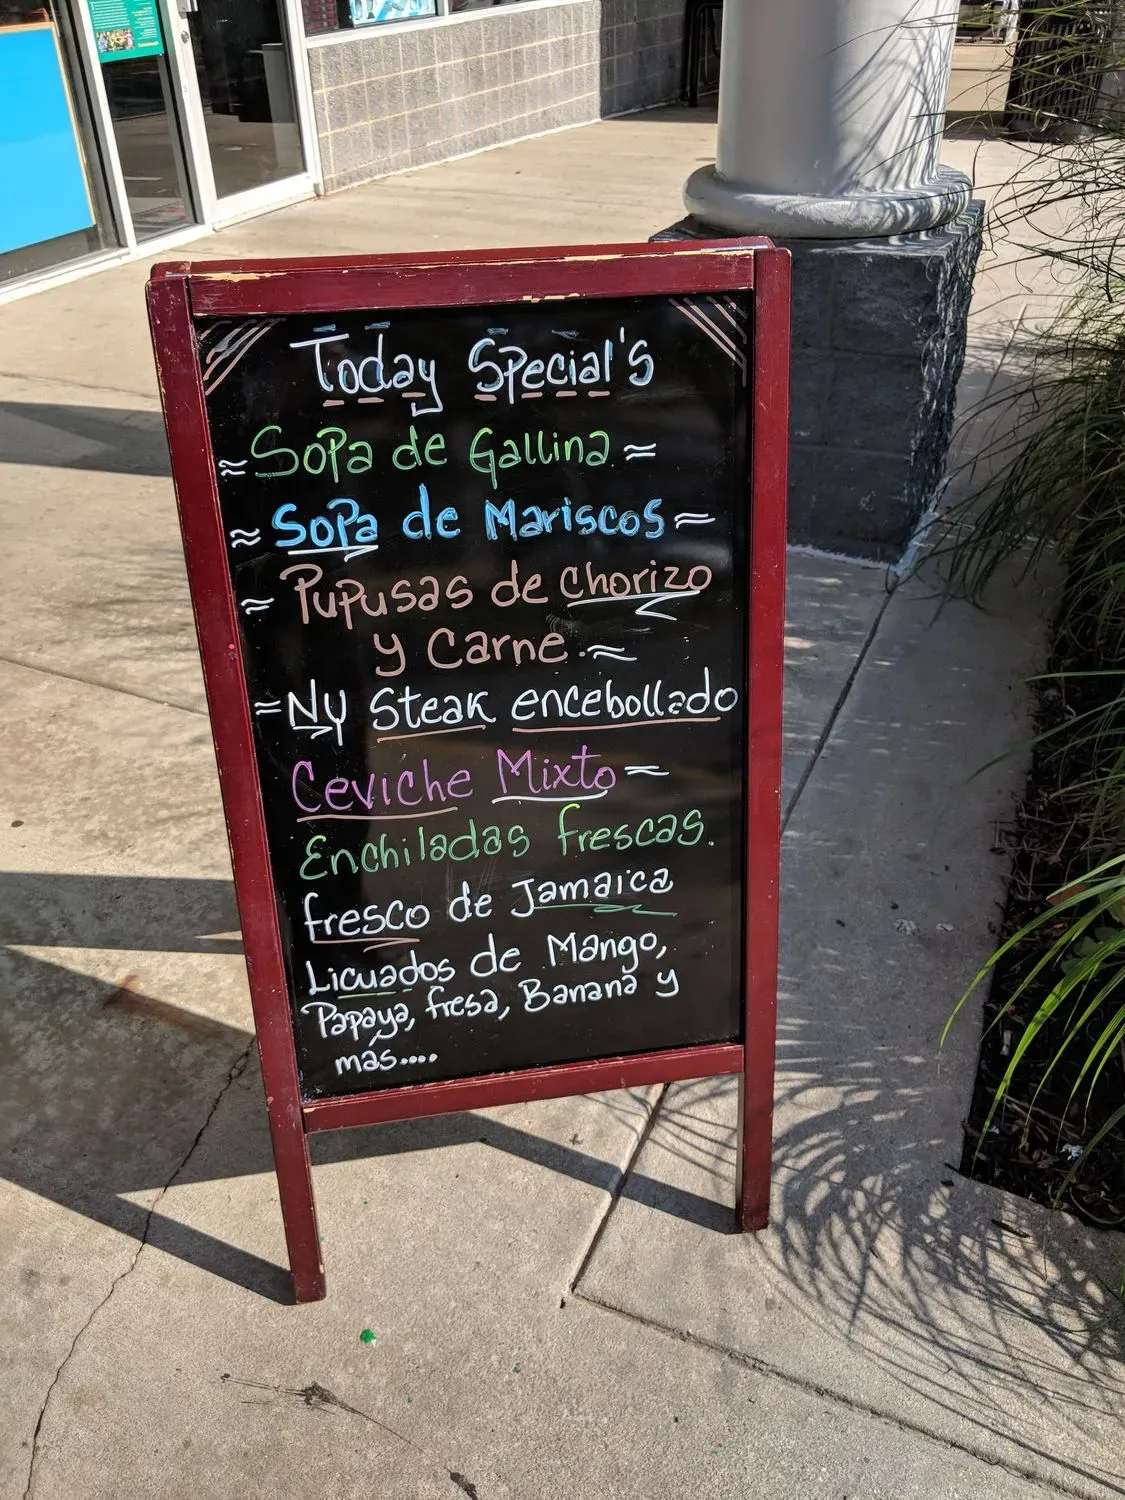 Today Special's
≈ Sopa de Gallina ≈
≈ Sopa de Mariscos =
≈ Pupusas de Chorizo
y Carne. ≈
= Ny Steak encebollado
Ceviche Mixto =
Enchiladas frescas.
fresco de Jamaica
Licuados de Mango,
Papaya, fresa, Banana y
más....